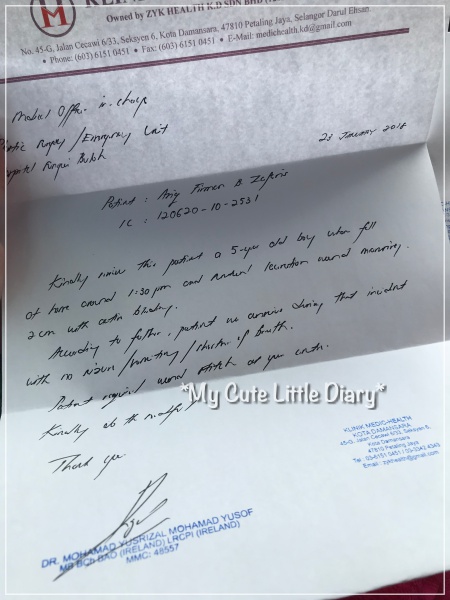 M
KLINI
Owned by ZYK HEALTH K.D SDN BHD
No. 45-G, Jalan Cecawi 6/33, Seksyen 6, Kota Damansara, 47810 Petaling Jaya, Selangor Darul Ehsan
• Phone: (603) 6151 0451 • Fax: (603) 6151 0451 • E-Mail: medichealth.kd@gmail.com
Medical Officer in-charge
/Emergency Unit
Sungai Buloh
23 JANUARY 2018
Patient : B
IC : 120620-10-2531
Kindly review this patient a 5-year old boy when fell
at home around 1:30pm and sustained laceration wound measuring
2cm with active bleeding.
According to father, patient was conscious during that incident
with no /vomiting/shortness of breath.
Patient required wound stitch at your centre.
Kindly do the
Thank you
*My Cute Little Diary*
KLINIK MEDIC-HEALTH
KOTA DAMANSARA
45-G, Jalan Cecawi 6/33, Seksyen 6,
Kota Damansara
47810 Petaling Jaya
Tel : 03-6151 0451 /
Email : zykhealth@gmail.com
DR. MOHAMAD YUSRIZAL MOHAMAD YUSOF
MB BCh BAO (IRELAND) LRCPI (IRELAND)
MMC: 48557